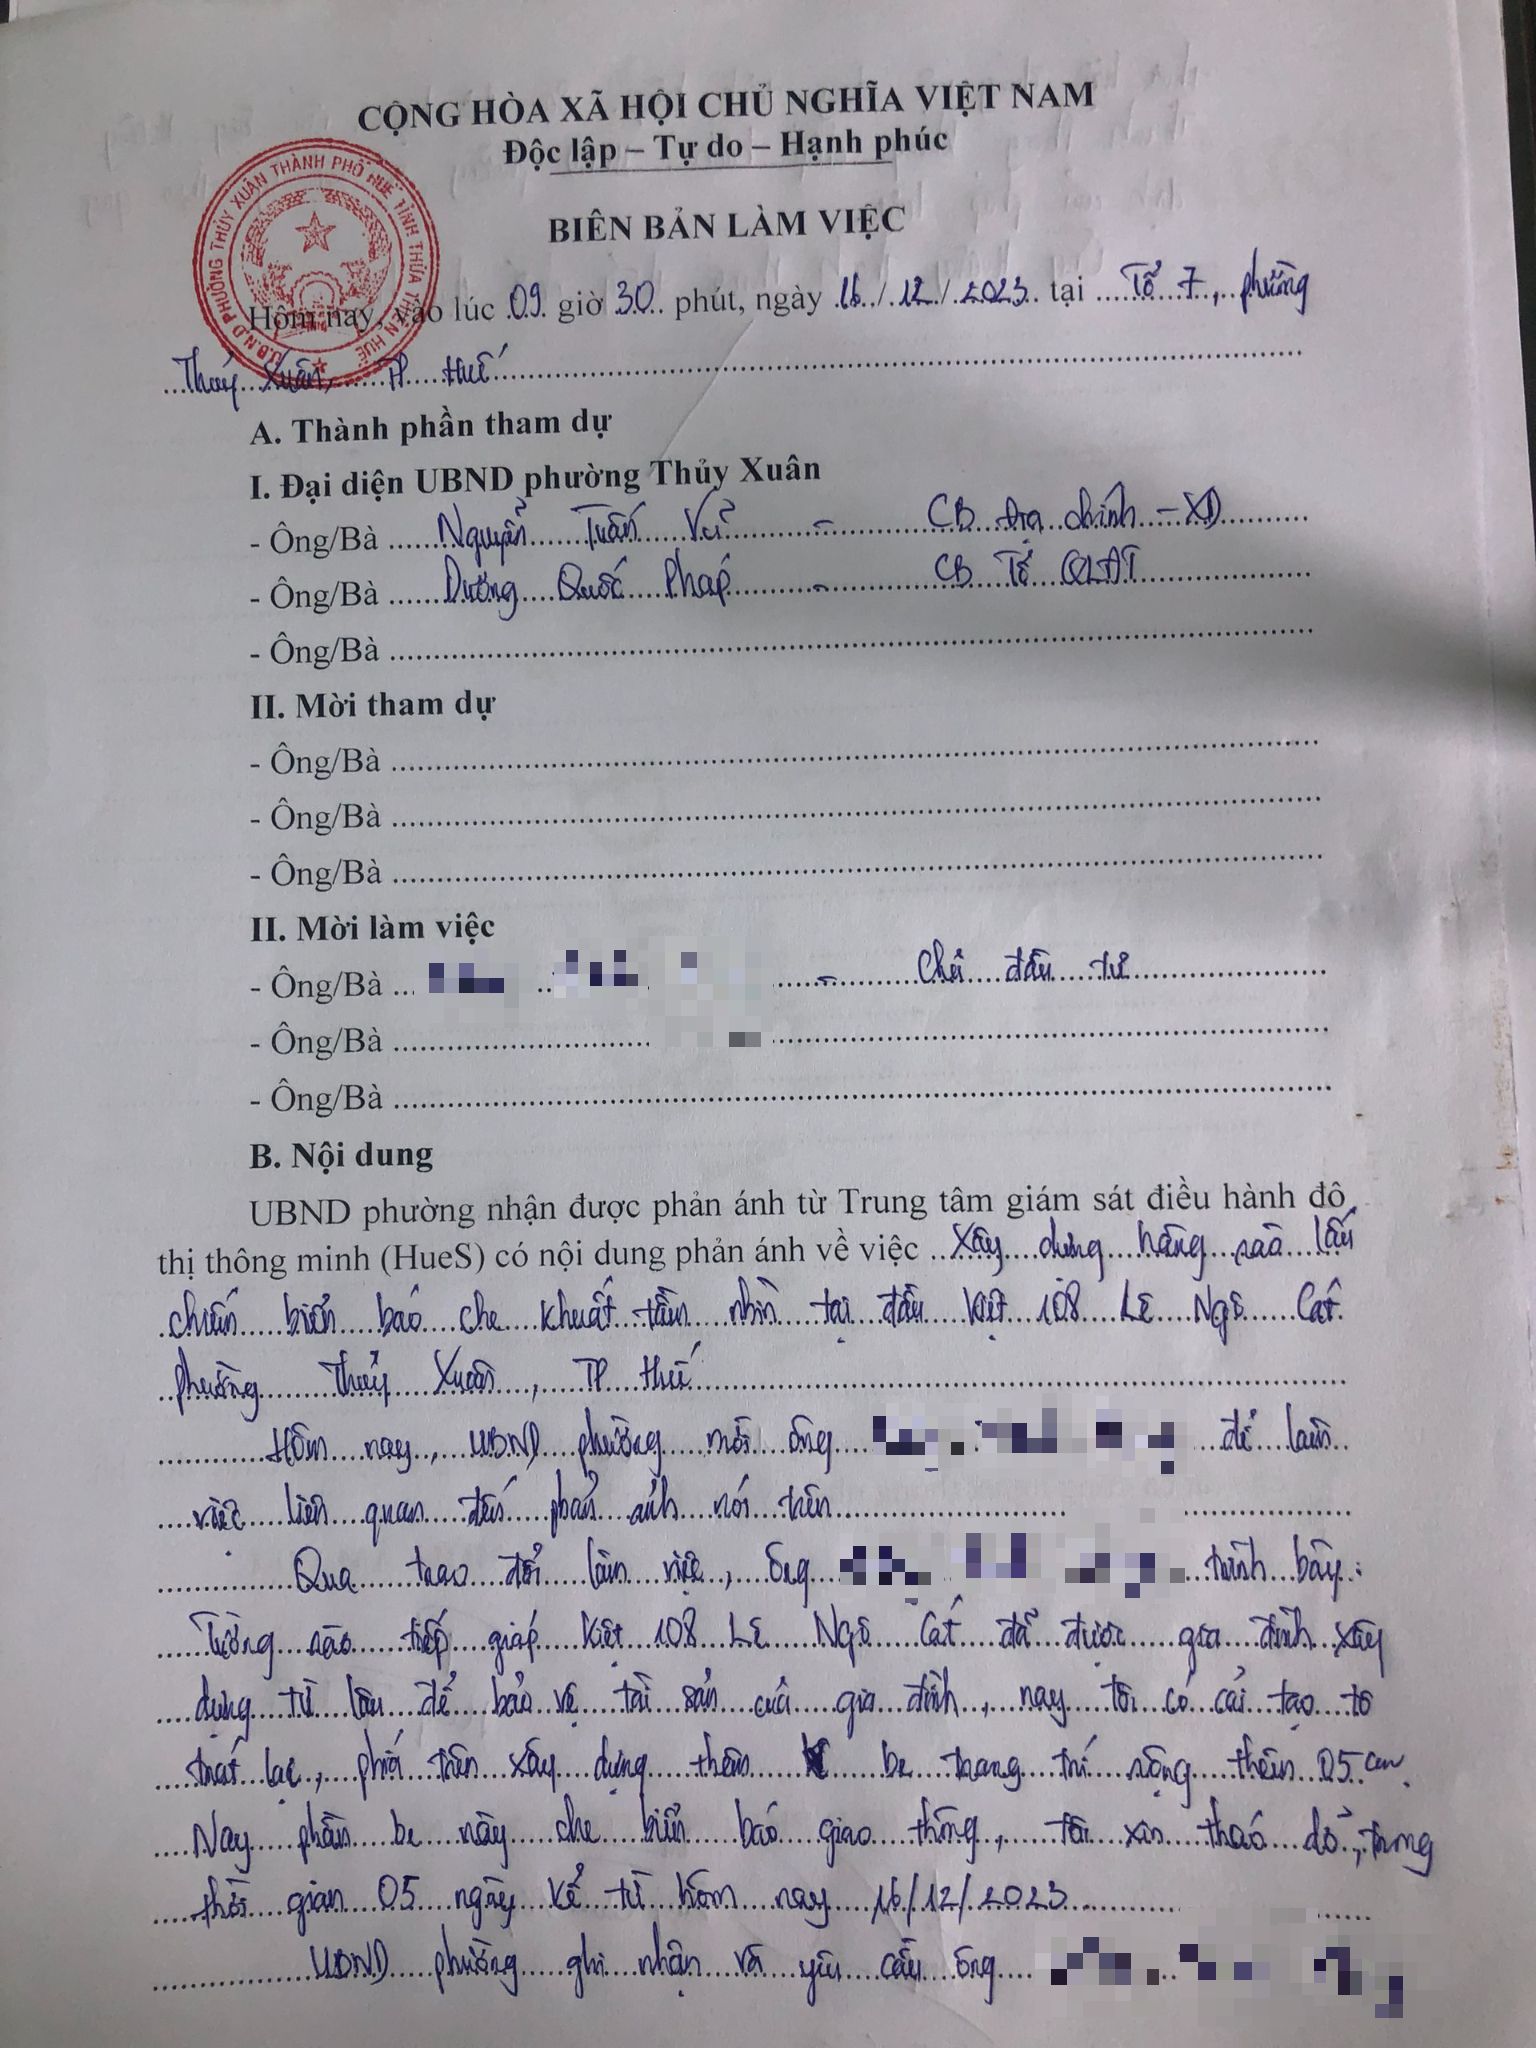 CỘNG HÒA XÃ HỘI CHỦ NGHĨA VIỆT NAM
Độc lập – Tự do – Hạnh phúc
U.B.N.D PHƯỜNG THỦY XUÂN THÀNH PHỐ HUẾ TỈNH THỪA THIÊN HUẾ
BIÊN BẢN LÀM VIỆC
Hôm nay, vào lúc 09 giờ 30 phút, ngày 16/12/2023 tại Tổ 7, phường
Thủy Xuân, TP Huế
A. Thành phần tham dự
I. Đại diện UBND phường Thủy Xuân
- Ông/Bà Nguyễn Tuấn Vũ - CB địa chính - XD
- Ông/Bà Dương Quốc Pháp - CB Tổ QLĐT
- Ông/Bà
II. Mời tham dự
- Ông/Bà
- Ông/Bà
- Ông/Bà
II. Mời làm việc
- Ông/Bà - Chủ đầu tư
- Ông/Bà
- Ông/Bà
B. Nội dung
UBND phường nhận được phản ánh từ Trung tâm giám sát điều hành đô
thị thông minh (HueS) có nội dung phản ánh về việc Xây dựng hàng rào lấn
chiếm biển báo che khuất tầm nhìn tại đầu kiệt 108 Lê Ngô Cát
phường Thủy Xuân, TP Huế
Hôm nay, UBND phường mời ông để làm
việc liên quan đến phản ánh nói trên
Qua trao đổi làm việc, ông trình bày:
Tường rào tiếp giáp kiệt 108 Lê Ngô Cát đã được gia đình xây
dựng từ lâu để bảo vệ tài sản của gia đình, nay tôi có cải tạo tô
trát lại, phía trên xây dựng thêm be trang trí rộng thêm 05 cm.
Nay phần be này che biển báo giao thông, tôi xin tháo dỡ, trong
thời gian 05 ngày kể từ hôm nay 16/12/2023
UBND phường ghi nhận và yêu cầu ông